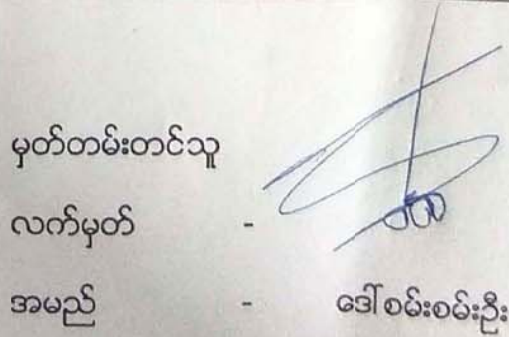 မှတ်တမ်းတင်သူ
လက်မှတ် -
အမည် - ဒေါ်စမ်းစမ်းဦး